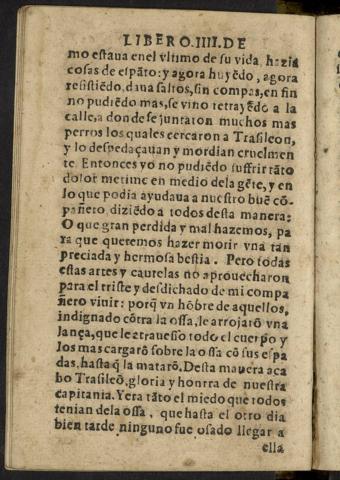 LIBERO.IIII.DE
mo estaua enel vltimo de su vida, hazia
cosas de espãto: y agora huyẽdo, agora
resistiẽdo, daua saltos, sin compas, en fin
no pudiẽdo mas, se vino retrayẽdo a la
calle, a donde se juntaron muchos mas
perros los quales cercaron a Trasileon,
y lo despedaçauan y mordian cruelmen
te. Entonces yo no pudiẽdo suffrir tãto
dolor metime en medio dela gẽte, y en
lo que podia ayudaua a nuestro buẽ cõ-
pañero, diziẽdo a todos desta manera:
O que gran perdida y mal hazemos, pa
ra que queremos hazer morir vna tan
preciada y hermosa bestia. Pero todas
estas artes y cautelas no aprouecharon
para el triste y desdichado de mi compa
ñero viuir: porq̃ vn hõbre de aquellos,
indignado cõtra la ossa, le arrojarõ vna
lança, que le atrauessò todo el cuerpo y
los mas cargarõ sobre la ossa cõ sus espa
das, hasta q̃ la matarõ. Desta manera aca
bo Trasileõ, gloria y honrra de nuestra
capitania. Y era tãto el miedo que todos
tenian dela ossa, que hasta el otro dia
bien tarde ninguno fue osado llegar a
ella